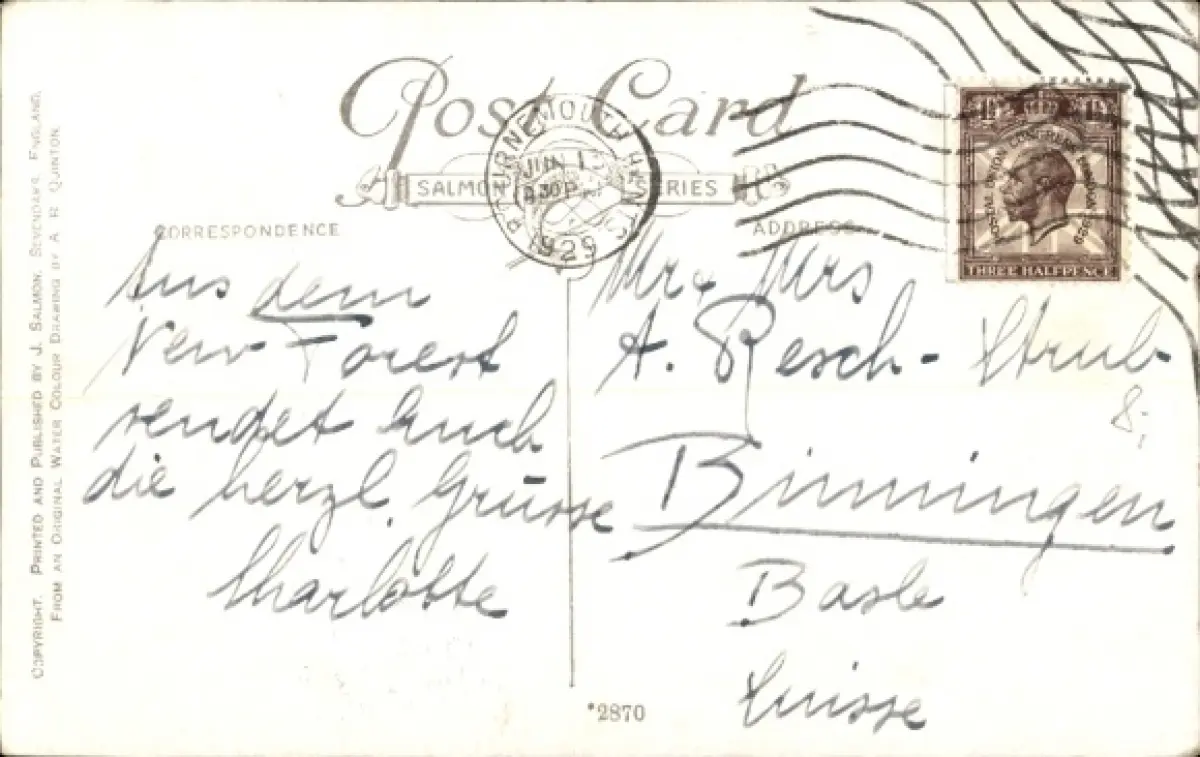 Post Card
SALMON SERIES
BOURNEMOUTH HANTS
JUN 13
30 P.M
1929
1½ 1½
POSTAL UNION CONGRESS LONDON 1929
THREE HALFPENCE
CORRESPONDENCE
ADDRESS
Aus dem
New Forest
sendet Euch
die herzl. Grüsse
Charlotte
Mr & Mrs
A. Resch - Strub
8;
Binningen
Basle
Suisse
*2870
COPYRIGHT. PRINTED AND PUBLISHED BY J. SALMON, SEVENOAKS, ENGLAND,
FROM AN ORIGINAL WATER COLOUR DRAWING BY A R QUINTON.